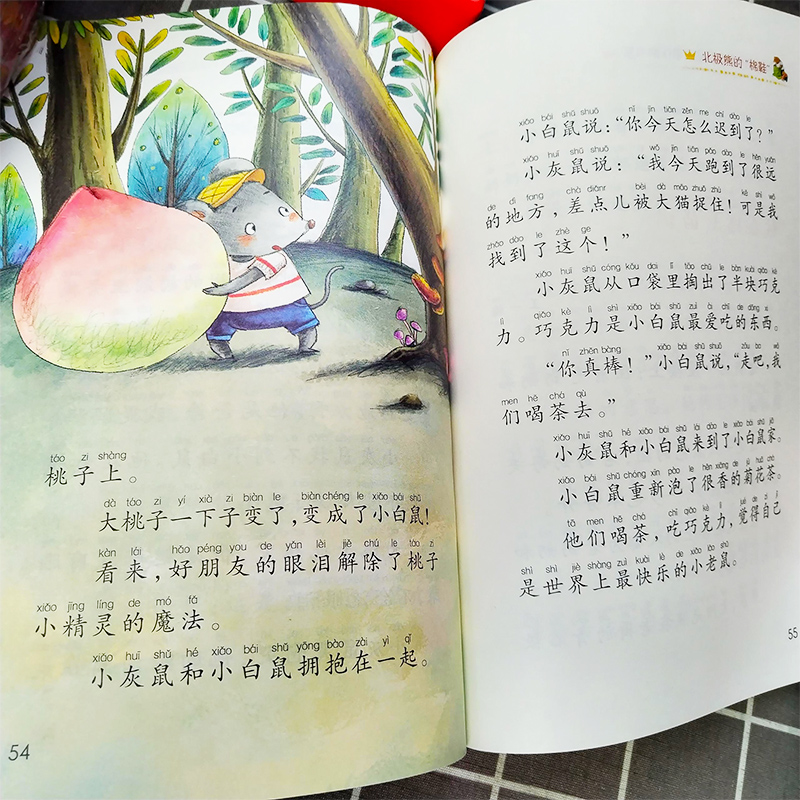 táo zi shàng
桃子上。
dà táo zi yí xià zi biàn le biàn chéng le xiǎo bái shǔ
大桃子一下子变了，变成了小白鼠！
kàn lái hǎo péng you de yǎn lèi jiě chú le táo zi
看来，好朋友的眼泪解除了桃子
xiǎo jīng líng de mó fǎ
小精灵的魔法。
xiǎo huī shǔ hé xiǎo bái shǔ yōng bào zài yì qǐ
小灰鼠和小白鼠拥抱在一起。
54
北极熊的“棉鞋”
xiǎo bái shǔ shuō nǐ jīn tiān zěn me chí dào le
小白鼠说：“你今天怎么迟到了？”
xiǎo huī shǔ shuō wǒ jīn tiān pǎo dào le hěn yuǎn
小灰鼠说：“我今天跑到了很远
de dì fang chà diǎnr bèi dà māo zhuō zhù kě shì wǒ
的地方，差点儿被大猫捉住！可是我
zhǎo dào le zhè ge
找到了这个！”
xiǎo huī shǔ cóng kǒu dai lǐ tāo chū le bàn kuài qiǎo kè
小灰鼠从口袋里掏出了半块巧克
lì qiǎo kè lì shì xiǎo bái shǔ zuì ài chī de dōng xi
力。巧克力是小白鼠最爱吃的东西。
nǐ zhēn bàng xiǎo bái shǔ shuō zǒu ba wǒ
“你真棒！”小白鼠说，“走吧，我
men hē chá qù
们喝茶去。”
xiǎo huī shǔ hé xiǎo bái shǔ lái dào le xiǎo bái shǔ jiā
小灰鼠和小白鼠来到了小白鼠家。
xiǎo bái shǔ chóng xīn pào le hěn xiāng de jú huā chá
小白鼠重新泡了很香的菊花茶。
tā men hē chá chī qiǎo kè lì jué de zì jǐ
他们喝茶，吃巧克力，觉得自己
shì shì jiè shàng zuì kuài lè de xiǎo lǎo shǔ
是世界上最快乐的小老鼠。
55